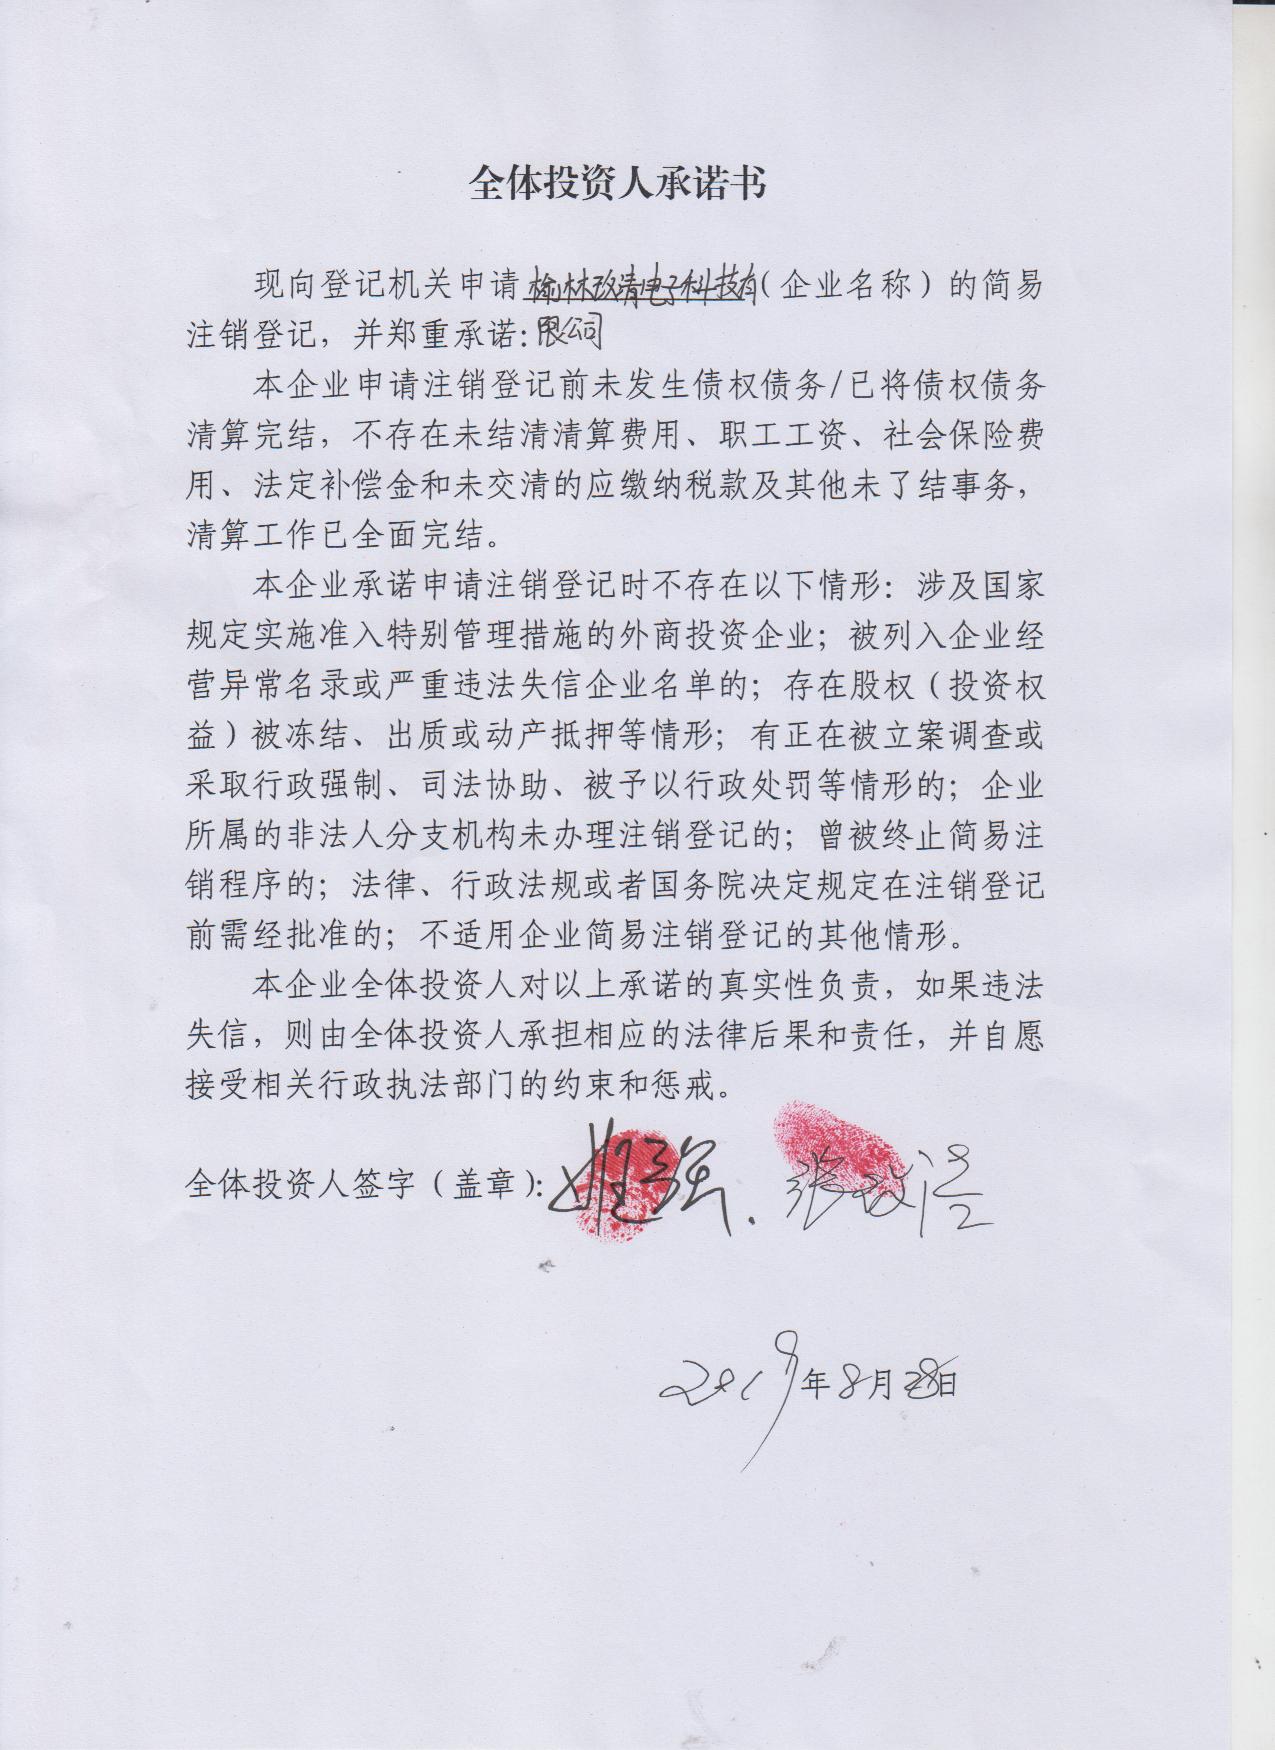 全体投资人承诺书
现向登记机关申请榆林玫清电子科技有（企业名称）的简易
注销登记，并郑重承诺：限公司
本企业申请注销登记前未发生债权债务/已将债权债务
清算完结，不存在未结清清算费用、职工工资、社会保险费
用、法定补偿金和未交清的应缴纳税款及其他未了结事务，
清算工作已全面完结。
本企业承诺申请注销登记时不存在以下情形：涉及国家
规定实施准入特别管理措施的外商投资企业；被列入企业经
营异常名录或严重违法失信企业名单的；存在股权（投资权
益）被冻结、出质或动产抵押等情形；有正在被立案调查或
采取行政强制、司法协助、被予以行政处罚等情形的；企业
所属的非法人分支机构未办理注销登记的；曾被终止简易注
销程序的；法律、行政法规或者国务院决定规定在注销登记
前需经批准的；不适用企业简易注销登记的其他情形。
本企业全体投资人对以上承诺的真实性负责，如果违法
失信，则由全体投资人承担相应的法律后果和责任，并自愿
接受相关行政执法部门的约束和惩戒。
全体投资人签字（盖章）：
2019年8月28日